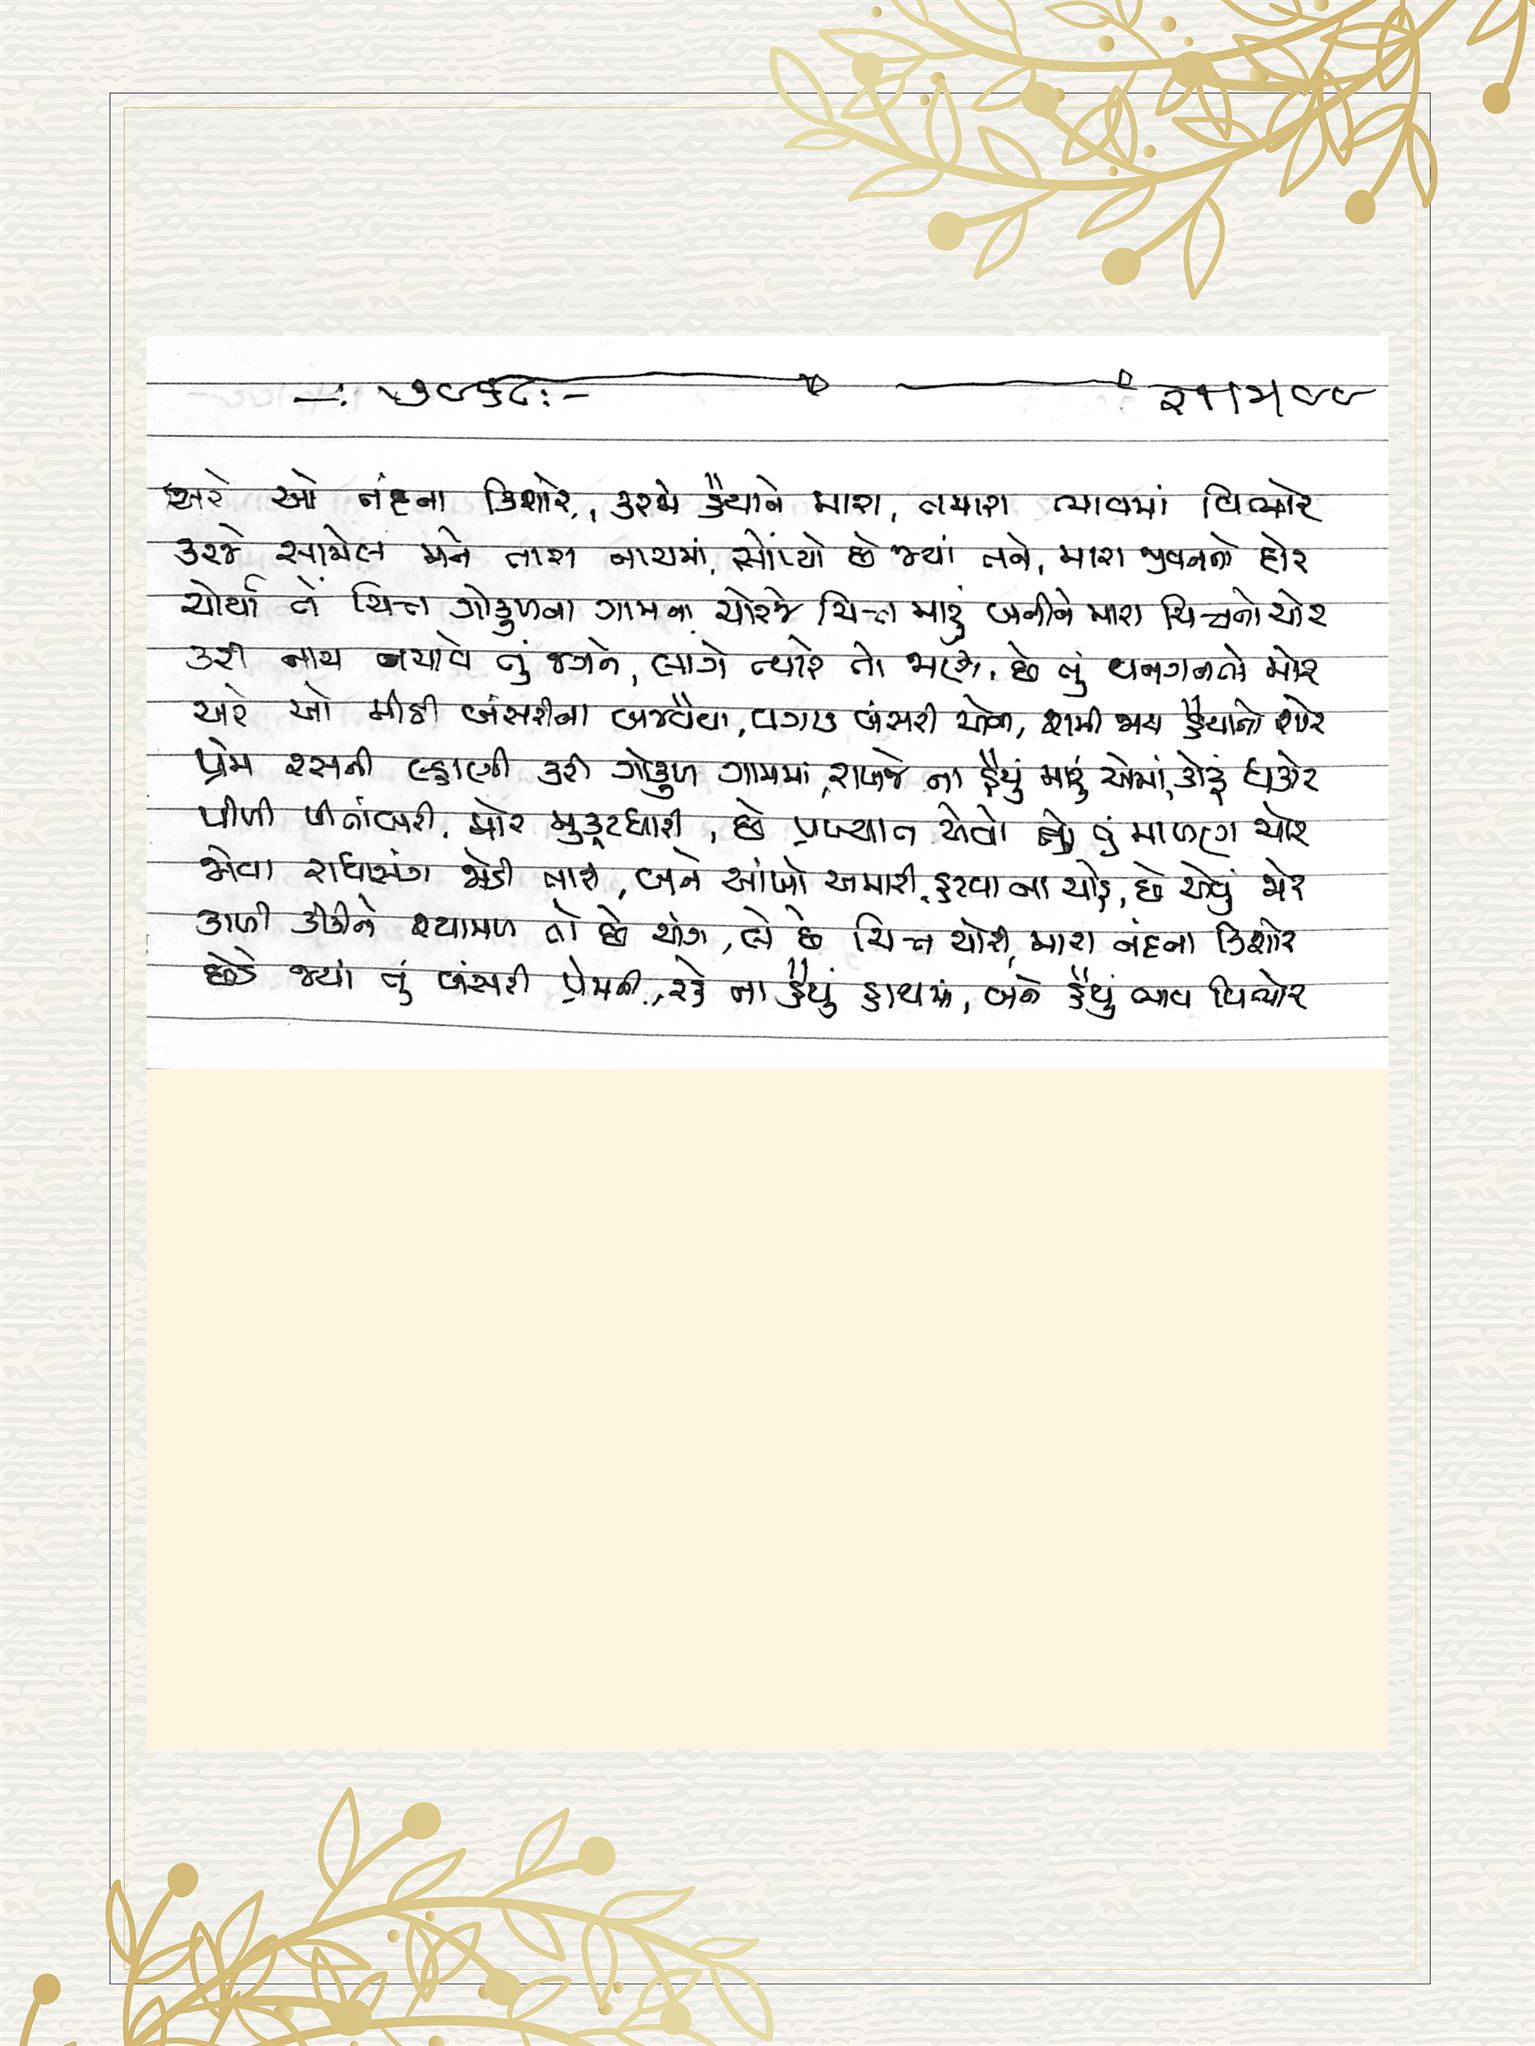 અરે ઓ નંદના કિશોર, કરજે હૈયાને મારા, તમારા ભાવમાં વિભોર
કરજે સામેલ મને તારા નાચમાં, સોંપ્યો છે જ્યાં તને, મારા જીવનનો દોર
ચોર્યાં તેં ચિત્ત ગોકુળના ગામના, ચોરજે ચિત્ત મારું બનીને મારા ચિત્તનો ચોર
કરી નાચ નચાવે તું જગને, લાગે ત્યારે તો જાણે, છે તું થનગનતો મોર
અરે ઓ મીઠી બંસરીના બજવૈયા, વગાડ બંસરી એવી, શમી જાય હૈયાનો શોર
પ્રેમ રસની લ્હાણી કરી ગોકુળ ગામમાં, રાખજે ના હૈયું મારું એમાં, કોરું ધાકોર
પીળી પીતાંબરી, મોર મુકુટધારી, છે પ્રખ્યાત એવો તું માખણ ચોર
જોવા રાધાસંગ જોડી તારી, બને આંખો અમારી, હટવા ના ચાહે, છે એવું જોર
કાળી કીકીને શ્યામળ તો છે અંગ, લે છે ચિત્ત ચોરી, મારા નંદના કિશોર
છેડે જ્યાં તું બંસરી પ્રેમની, રહે ના હૈયું હાથમાં, બને હૈયું ભાવ વિભોર